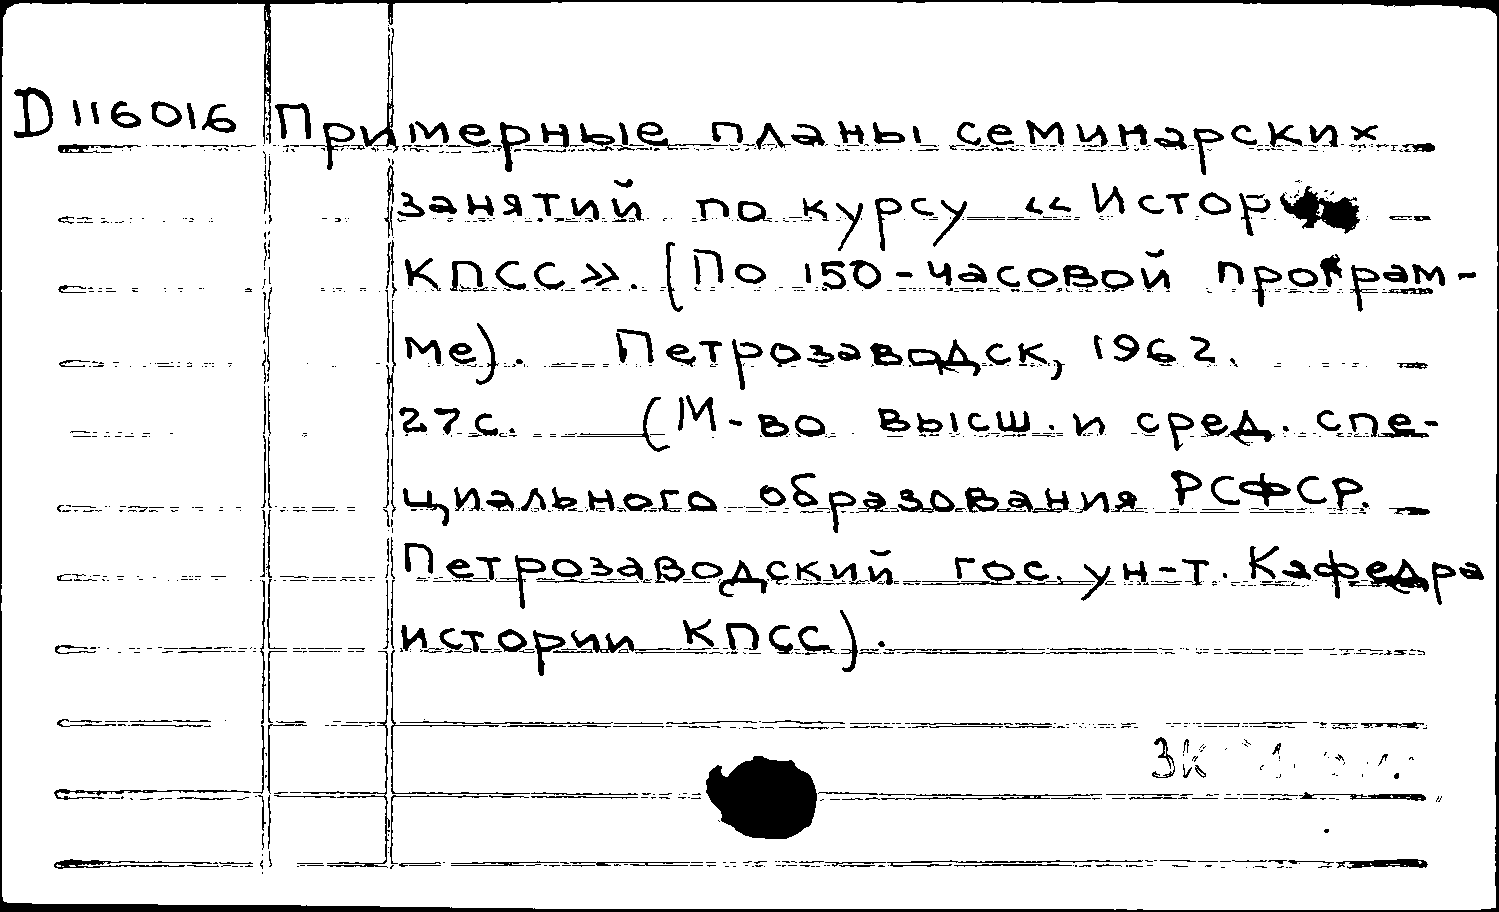 D116016 Примерные планы семинарских
занятий по курсу «Истор
КПСС». (По 150-часовой програм-
ме). Петрозаводск, 1962.
27с. (М-во высш. и сред. спе-
циального образования РСФСР.
Петрозаводский гос. ун-т. Кафедра
истории КПСС).
3К